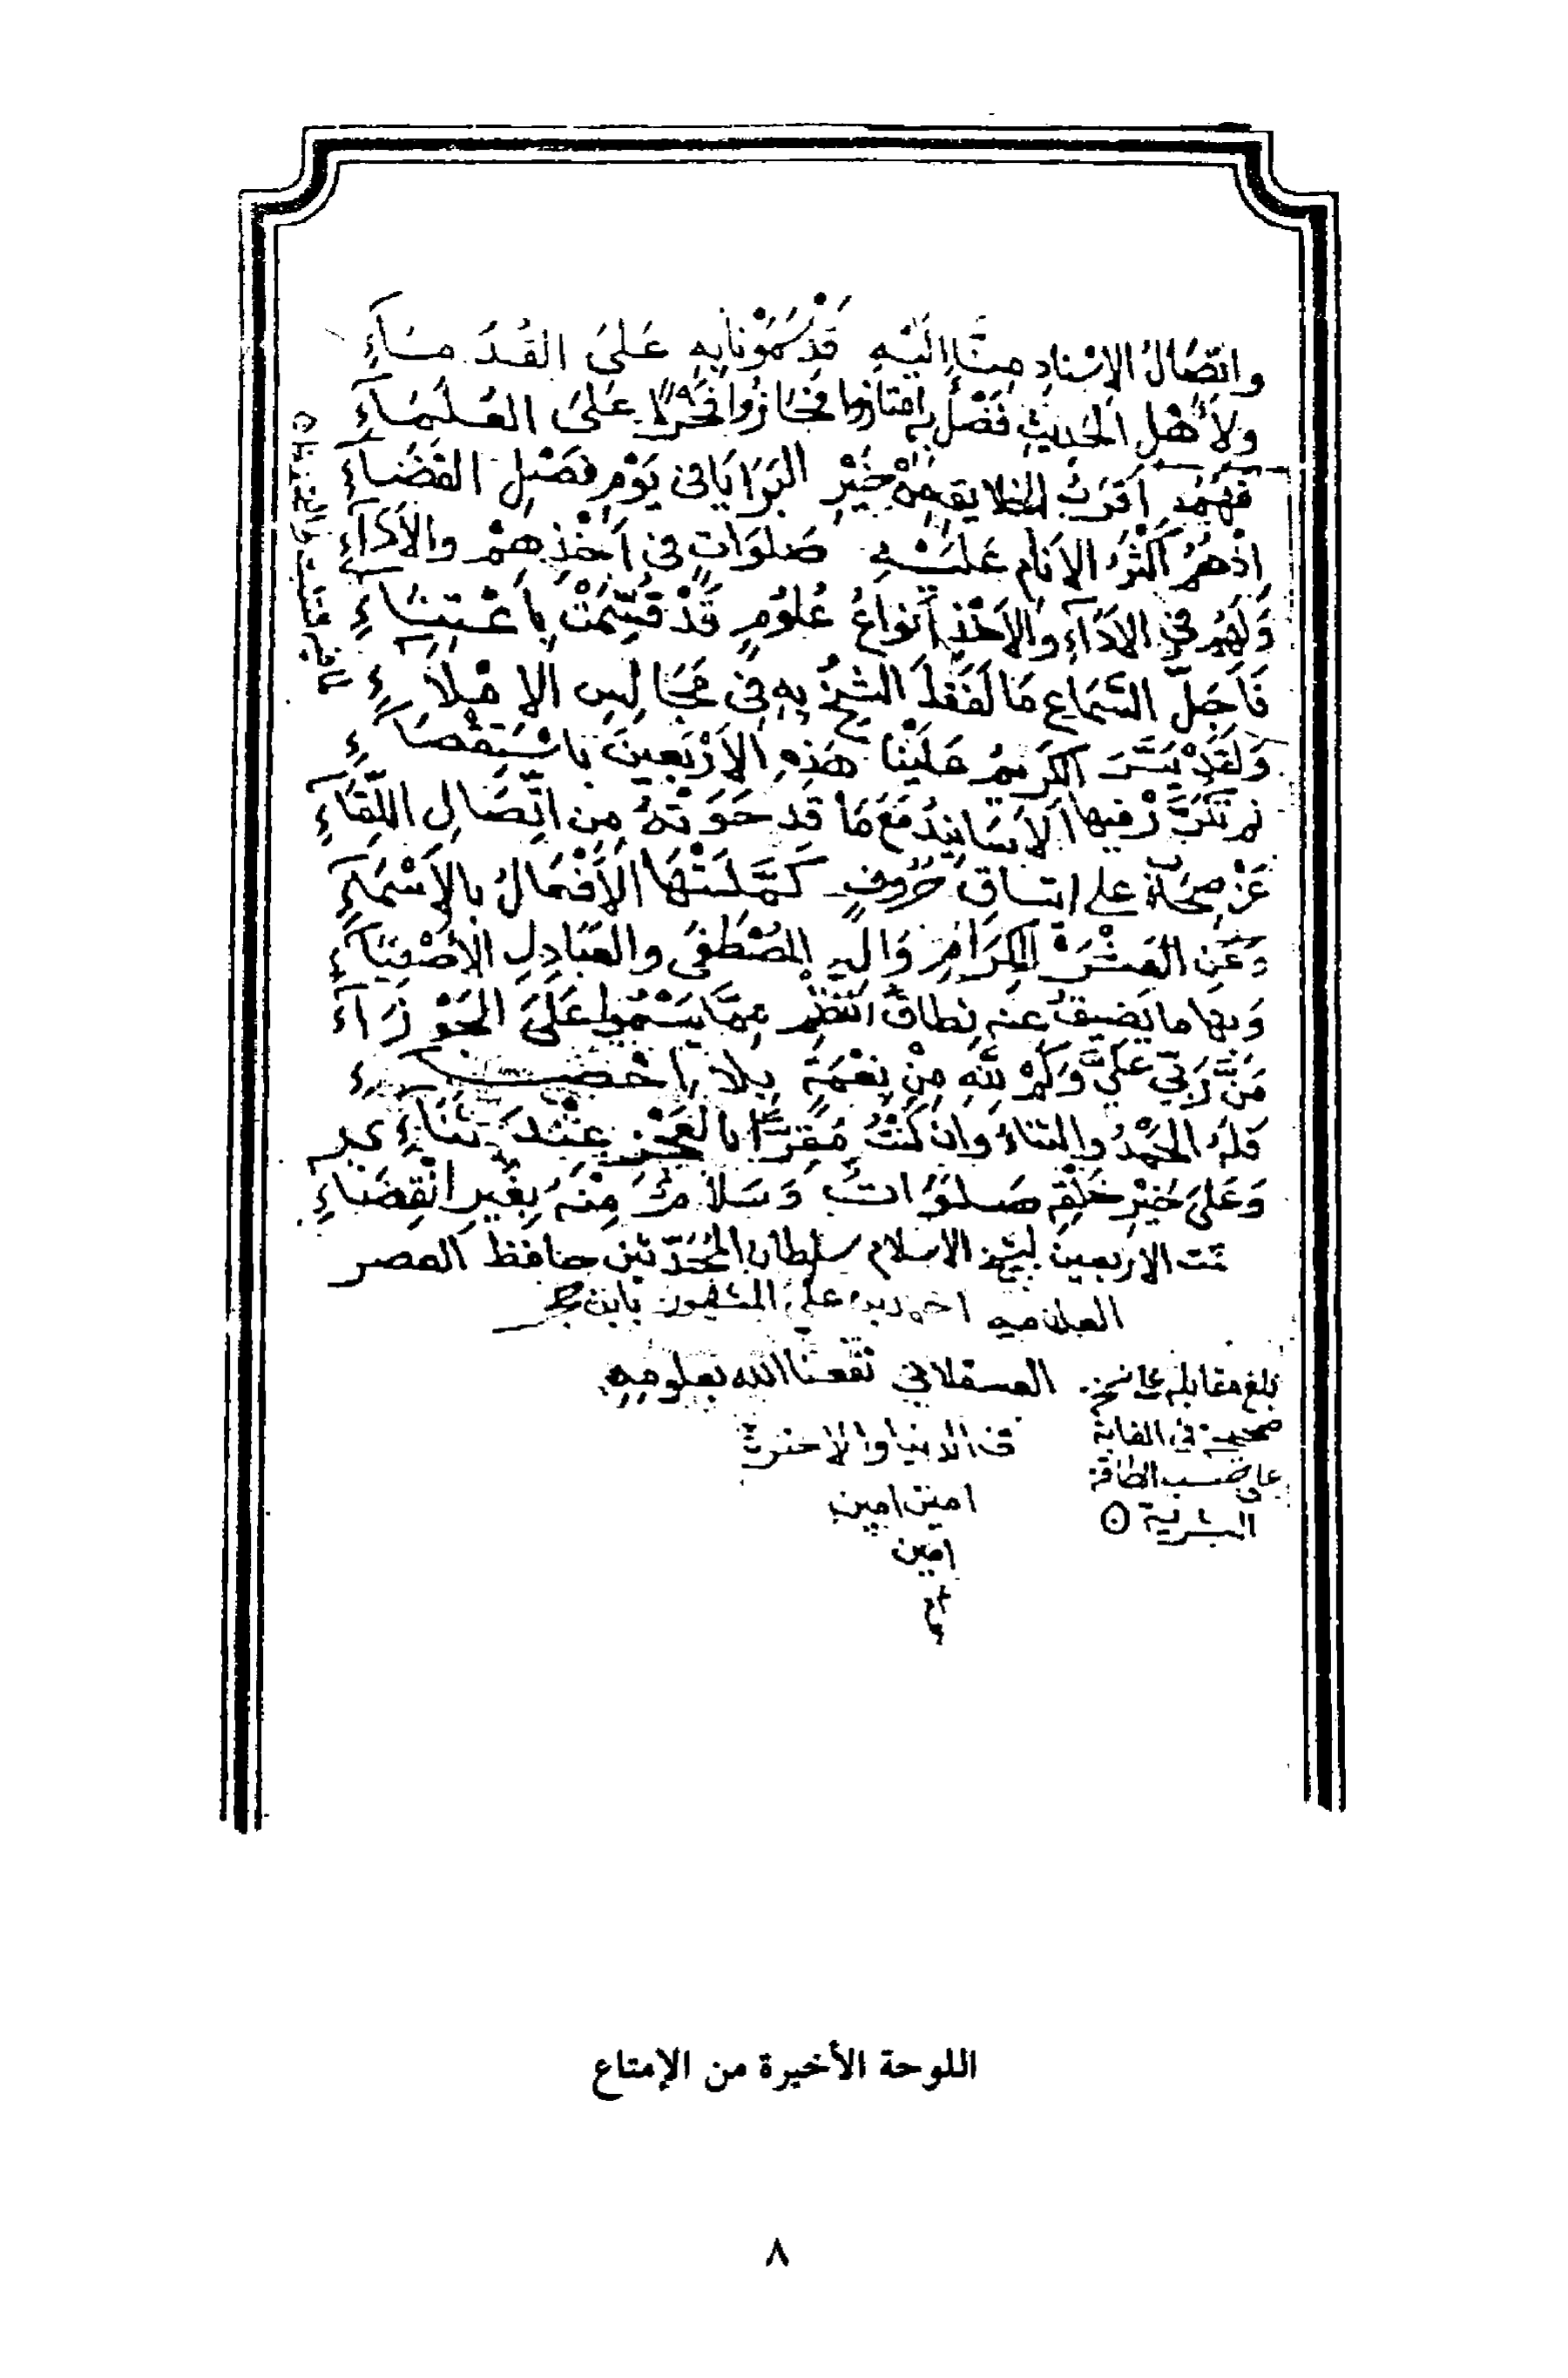 واتِّصَالُ الإسْنادِ مِنَّا إِلَيْهِ قَدْ سَمَوْنَا بِهِ عَلَى القُدَمَاءِ
ولأَهْلِ الحَدِيثِ فَضْلٌ بِهِ امْتَازُوا فَحَازُوا فَخْرًا عَلَى العُلَمَاءِ
فَهُمُ أَقْرَبُ الخَلايِقِ مِنْ خَيْرِ البَرَايَا فِي يَوْمِ فَصْلِ القَضَاءِ
إِذْ هُمُ أَكْثَرُ الأَنَامِ عَلَيْهِ صَلَوَاتٍ فِي أَخْذِهِمْ والأَدَآءِ
وَلَهُمْ فِي الأَدَآءِ والأَخْذِ أَنْوَاعُ عُلُومٍ قَدْ قُسِّمَتْ بِاعْتِنَاءِ
فَأَجَلُّ السَّمَاعِ مَا لَفَظَ الشَّيْخُ بِهِ فِي مَجَالِسِ الإِمْلاءِ
وَلَقَدْ يَسَّرَ الكَرِيمُ عَلَيْنا هَذِهِ الأَرْبَعِينَ بِاسْتِقْصَاءِ
لم تَتَكَرَّرْ فيها الأَسَانِيدُ مَعَ مَا قَدْ حَوَتْهُ مِنِ اتِّصَالِ اللِّقَاءِ
عَنْ صِحَابٍ على اتساقِ حُرُوفٍ كَمَّلَتْهَا الأَفْعَالُ بالأَسْمَاءِ
وَعَنِ العَشْرَةِ الكِرَامِ وَآلِ المُصْطَفَى والعَبَادِلِ الأَصْفِيَاءِ
وَبها ما يَضِيقُ عنه نِطاقُ النَّظْمِ مِمَّا يَسْمُوا عَلَى الجَوْزَآءِ
مَنَّ رَبِّي عَلَيَّ وَكَمْ لِلَّهِ مِنْ نِعْمَةٍ بِلا إِحْصَاءِ
فَلَهُ الحَمْدُ والثناءُ وإن كُنْتُ مُقِرًّا بالعَجْزِ عِنْدَ ثَنَاءِي
وَعَلَى خَيْرِ خَلْقِهِ صَلَوَاتٌ وَسَلامٌ مِنْهُ بِغَيْرِ انْقِضَاءِ
تمت الاربعين لشيخ الاسلام سلطان المُحَدّثين حافظ العصر
العلامه احمد بن علي المشهور بابن حجر
العسقلاني نفعنا الله بعلومه
في الدنيا والاخرة
امين امين
امين
بلغ مقابلة على نسخة
صحيحة في الغاية
على حسب الطاقة
البشرية
اللوحة الأخيرة من الإمتاع
٨